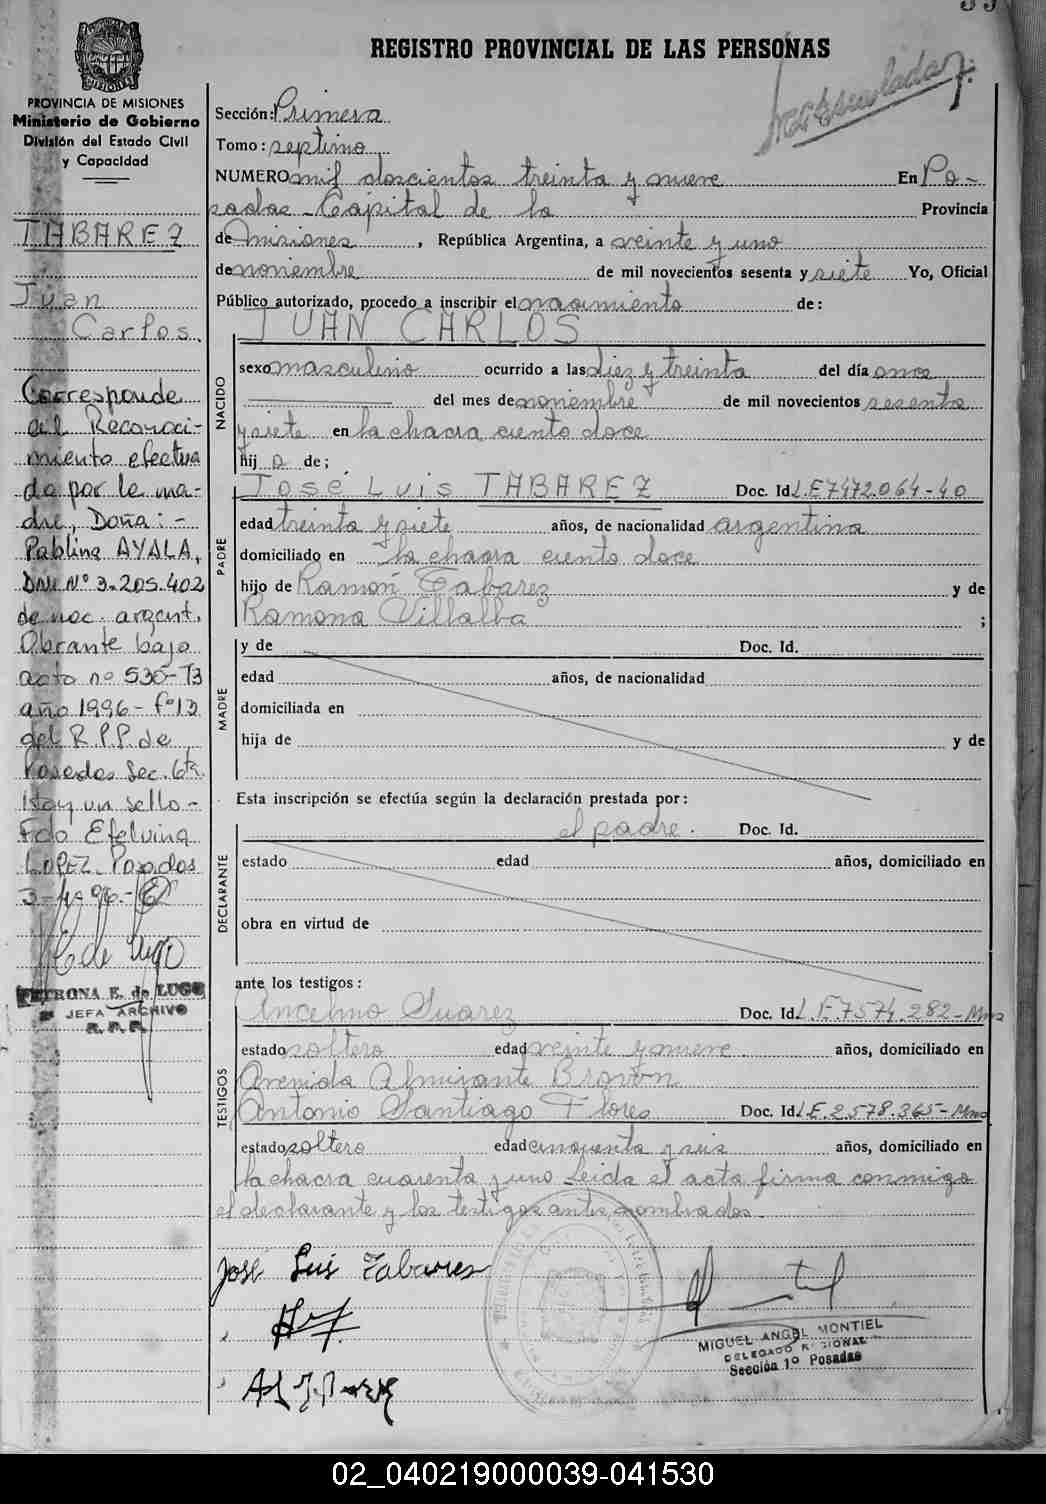 REGISTRO PROVINCIAL DE LAS PERSONAS
PROVINCIA DE MISIONES
Ministerio de Gobierno
División del Estado Civil
y Capacidad
TABAREZ
Juan
Carlos.
Corresponde
al Reconoci-
miento efectua
do por la ma-
dre, Doña: -
Pablina AYALA,
DNI Nº 3.205.402
de nac. argent.
Obrante bajo
acta nº 530-T3
año 1996- fº13
del R.P.P. de
Posadas Sec. 6ta
Hay un sello-
Fdo Etelvina
LOPEZ. Posadas
3-4-96.-
PETRONA E. de LUGO
JEFA ARCHIVO
R. P. P.
Sección: Primera
Tomo: septimo
NUMERO mil doscientos treinta y nueve En Po-
sadas - Capital de la Provincia
de Misiones, República Argentina, a veinte y uno
de noviembre de mil novecientos sesenta y siete Yo, Oficial
Público autorizado, procedo a inscribir el nacimiento de:
JUAN CARLOS
NACIDO
sexo masculino ocurrido a las diez y treinta del día once
del mes de noviembre de mil novecientos sesenta
y siete en la chacra ciento doce
hij o de;
PADRE
José Luis TABAREZ Doc. Id. L.E 7472.064-40
edad treinta y siete años, de nacionalidad argentina
domiciliado en la chacra ciento doce
hijo de Ramón Tabarez y de
Ramona Villalba ;
MADRE
y de Doc. Id.
edad años, de nacionalidad
domiciliada en
hija de y de
Esta inscripción se efectúa según la declaración prestada por:
el padre. Doc. Id.
DECLARANTE
estado edad años, domiciliado en
obra en virtud de
ante los testigos:
TESTIGOS
Ancelmo Suarez Doc. Id. L.E 7574.282-Mnes
estado soltero edad veinte y nueve años, domiciliado en
Avenida Almirante Brown
Antonio Santiago Flores Doc. Id. L.E. 2.578.365-Mnes
estado soltero edad cincuenta y seis años, domiciliado en
la chacra cuarenta y uno Leida el acta firma conmigo
el declarante y los testigos antes nombrados.
José Luis Tabares
MIGUEL ANGEL MONTIEL
DELEGADO REGIONAL
Sección 1º Posadas
02_040219000039-041530